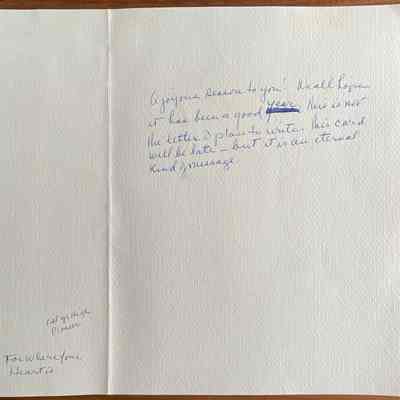 A joyous season to you! We all hope
it has been a good year. This is not
the letter I plan to write. This card
will be late – but it is an eternal
kind of message.
For where your
Heart is